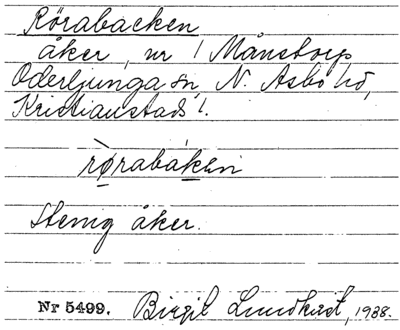 Rörabacken
åker, nr 1 Månstorp
Oderljunga sn, N. Åsbo hd,
Kristianstads l.
rørabakεn
Stenig åker.
Nr 5499. Birgit Lundkvist, 1938.